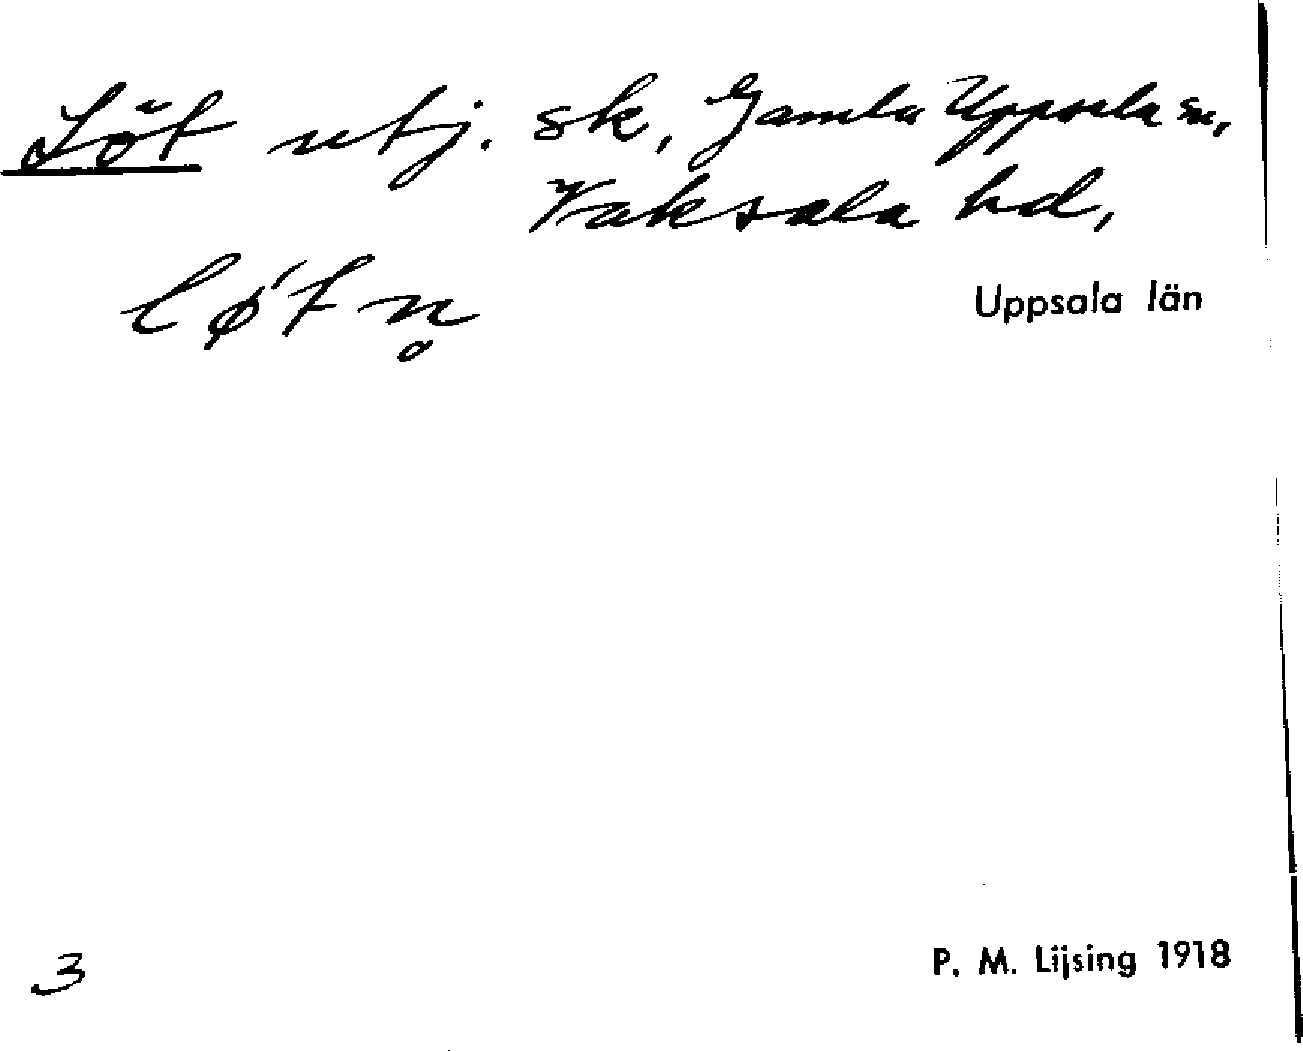 Löt utj. sk, Gamla Uppsala sn,
Vaksala hd,
Uppsala län
lø´tn̥
3
P. M. Lijsing 1918